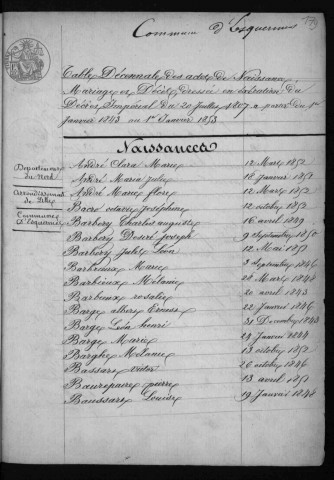 Commune d'Esquermes
Table Décennale des actes de Naissance
Mariage et Décès dressée en exécution du
Décret Impérial du 20 Juillet 1807 a partir du 1er
janvier 1843 au 1er Janvier 1853
Naissances
Département
du Nord
Arrondissement
de Lille
Commune
d'Esquermes
André Clara Marie 12 Mars 1852
André Maria Julie 18 janvier 1852
André Marie flore 12 Mars 1852
Bacro octavie joséphine 12 octobre 1852
Barbery Charles auguste 16 avril 1849
Barbery Désiré joseph 9 Septembre 1850
Barbery Jules Léon 12 Mai 1852
Barbieux Marie 3 Septembre 1846
Barbieux Mélanie 28 Mars 1848
Barbieux rosalie 20 avril 1843
Barge albert Ernest 22 Janvier 1846
Barge Léon henri 31 Décembre 1843
Barge Marie 24 Janvier 1844
Barghe Mélanie 13 octobre 1852
Bassars victor 26 octobre 1846
Baurepaire pierre 13 avril 1852
Baussart Louise 19 Janvier 1848